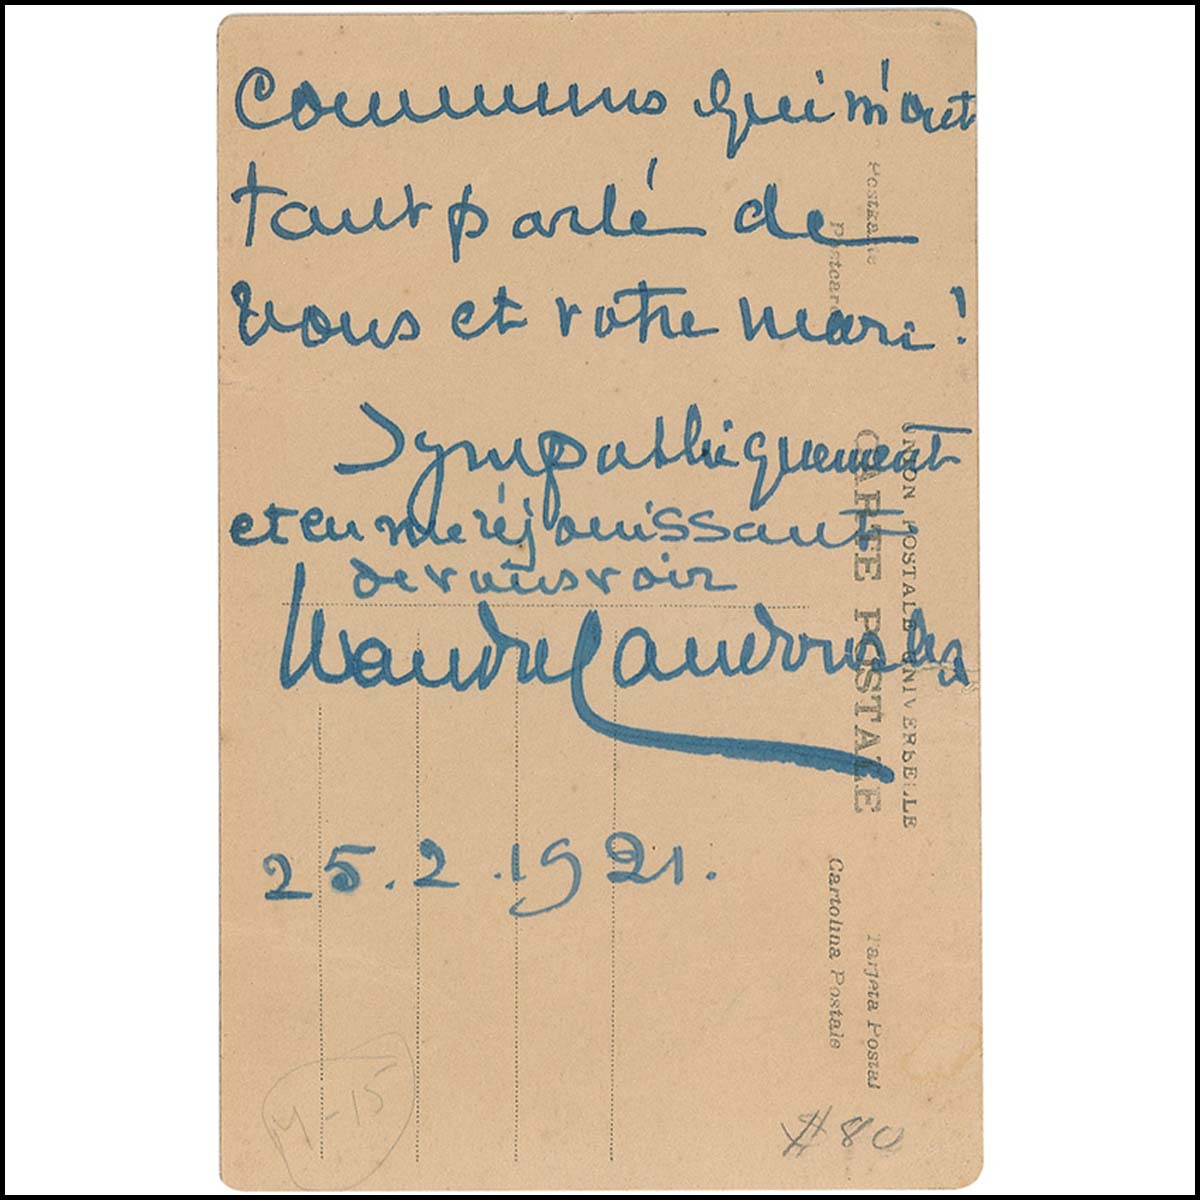 communs qui m'ont
tant parlé de
vous et votre mari !
Sympathiquement
et en me réjouissant
de vous voir
Wanda Landowska
25.2.1921.
Postkarte
Postcard
UNION POSTALE UNIVERSELLE
CARTE POSTALE
Tarjeta Postal
Cartolina Postale
M-15
#80